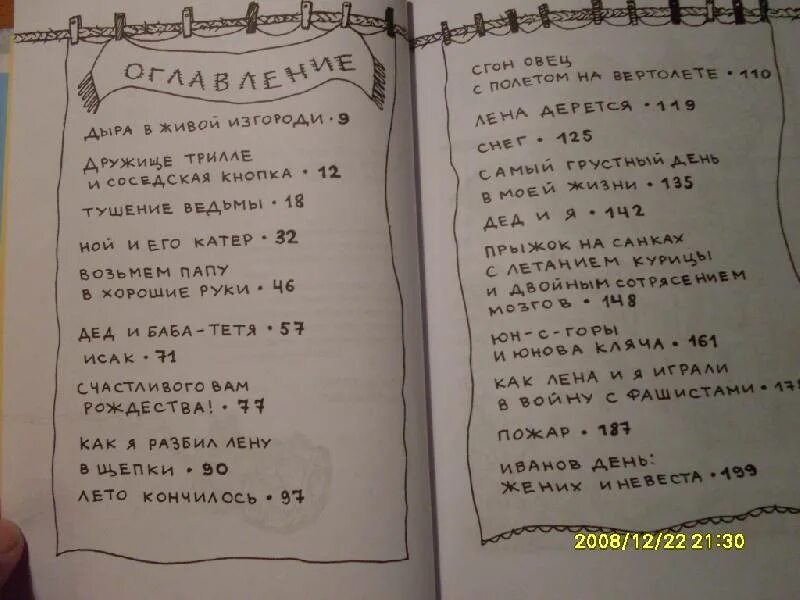 ОГЛАВЛЕНИЕ
ДЫРА В ЖИВОЙ ИЗГОРОДИ • 9
ДРУЖИЩЕ ТРИЛЛЕ
И СОСЕДСКАЯ КНОПКА • 12
ТУШЕНИЕ ВЕДЬМЫ • 18
НОЙ И ЕГО КАТЕР • 32
ВОЗЬМЕМ ПАПУ
В ХОРОШИЕ РУКИ • 46
ДЕД И БАБА-ТЕТЯ • 57
ИСАК • 71
СЧАСТЛИВОГО ВАМ
РОЖДЕСТВА! • 77
КАК Я РАЗБИЛ ЛЕНУ
В ЩЕПКИ • 90
ЛЕТО КОНЧИЛОСЬ • 97
СГОН ОВЕЦ
С ПОЛЕТОМ НА ВЕРТОЛЕТЕ • 110
ЛЕНА ДЕРЕТСЯ • 119
СНЕГ • 125
САМЫЙ ГРУСТНЫЙ ДЕНЬ
В МОЕЙ ЖИЗНИ • 135
ДЕД И Я • 142
ПРЫЖОК НА САНКАХ
С ЛЕТАНИЕМ КУРИЦЫ
И ДВОЙНЫМ СОТРЯСЕНИЕМ
МОЗГОВ • 148
ЮН-С-ГОРЫ
И ЮНОВА КЛЯЧА • 161
КАК ЛЕНА И Я ИГРАЛИ
В ВОЙНУ С ФАШИСТАМИ •
ПОЖАР • 187
ИВАНОВ ДЕНЬ:
ЖЕНИХ И НЕВЕСТА • 199
2008/12/22 21:30